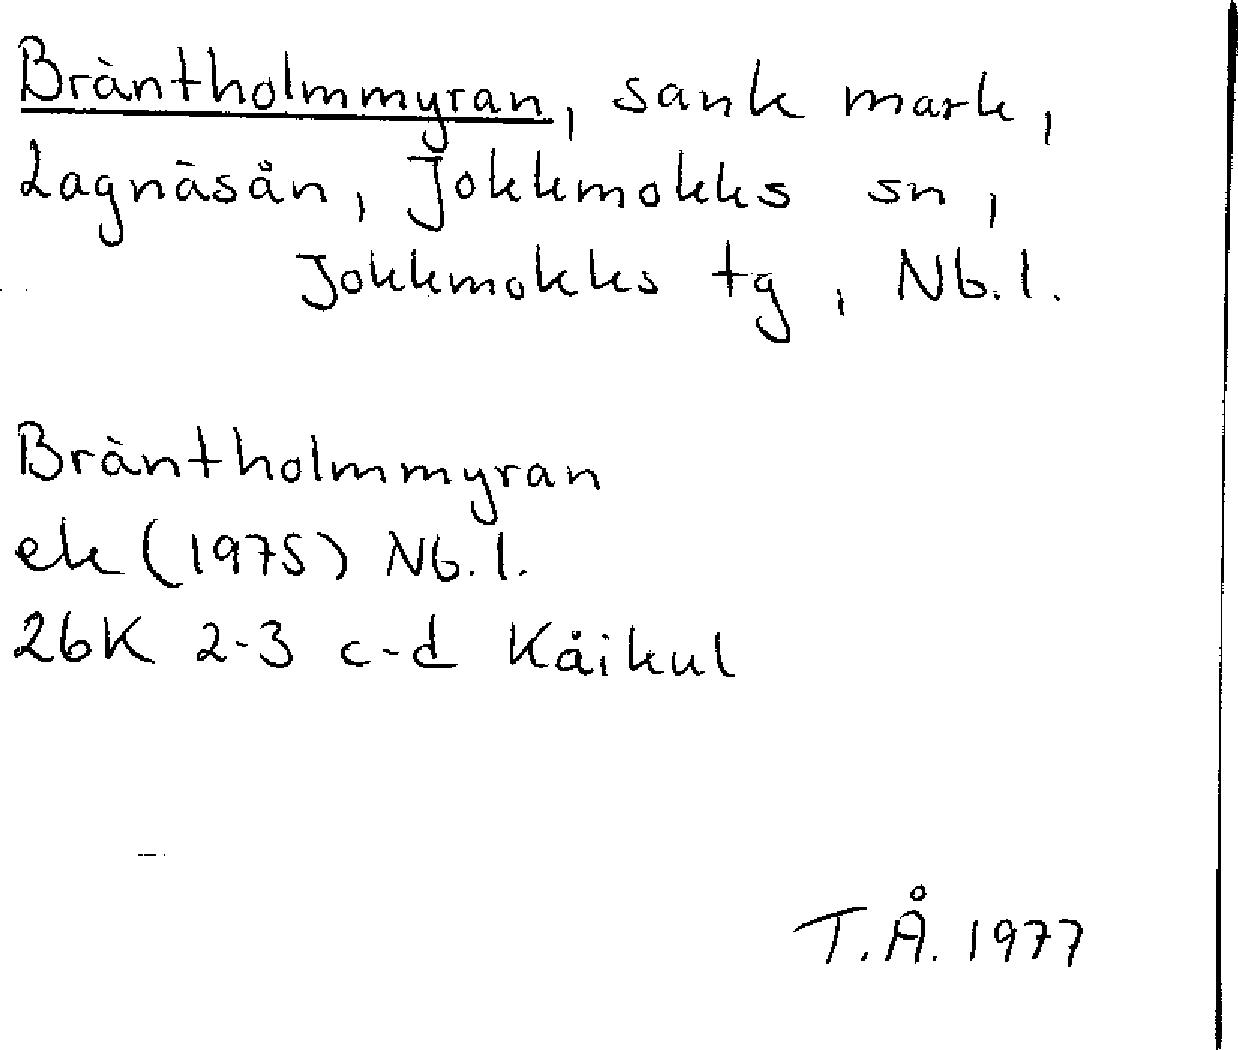 Bräntholmmyran, sank mark,
Lagnäsån, Jokkmokks sn,
Jokkmokks tg, Nb. l.
Bräntholmmyran
ek (1975) Nb. l.
26K 2-3 c-d Kåikul
T.Å. 1977